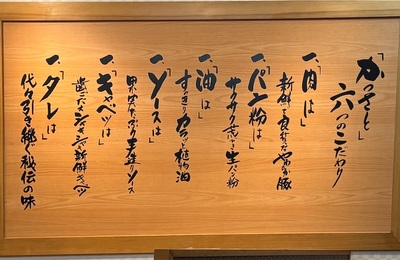 「かつさと」
六つのこだわり
一、「肉は」
新鮮で良質なやわらか豚
一、「パン粉は」
サクサク 生パン粉
一、「油は」
すっきりカラッと植物油
一、「ソースは」
果実たっぷり手造りソース
一、「キャベツは」
歯ごたえシャキシャキ新鮮キャベツ
一、「タレは」
代々引き継ぐ秘伝の味